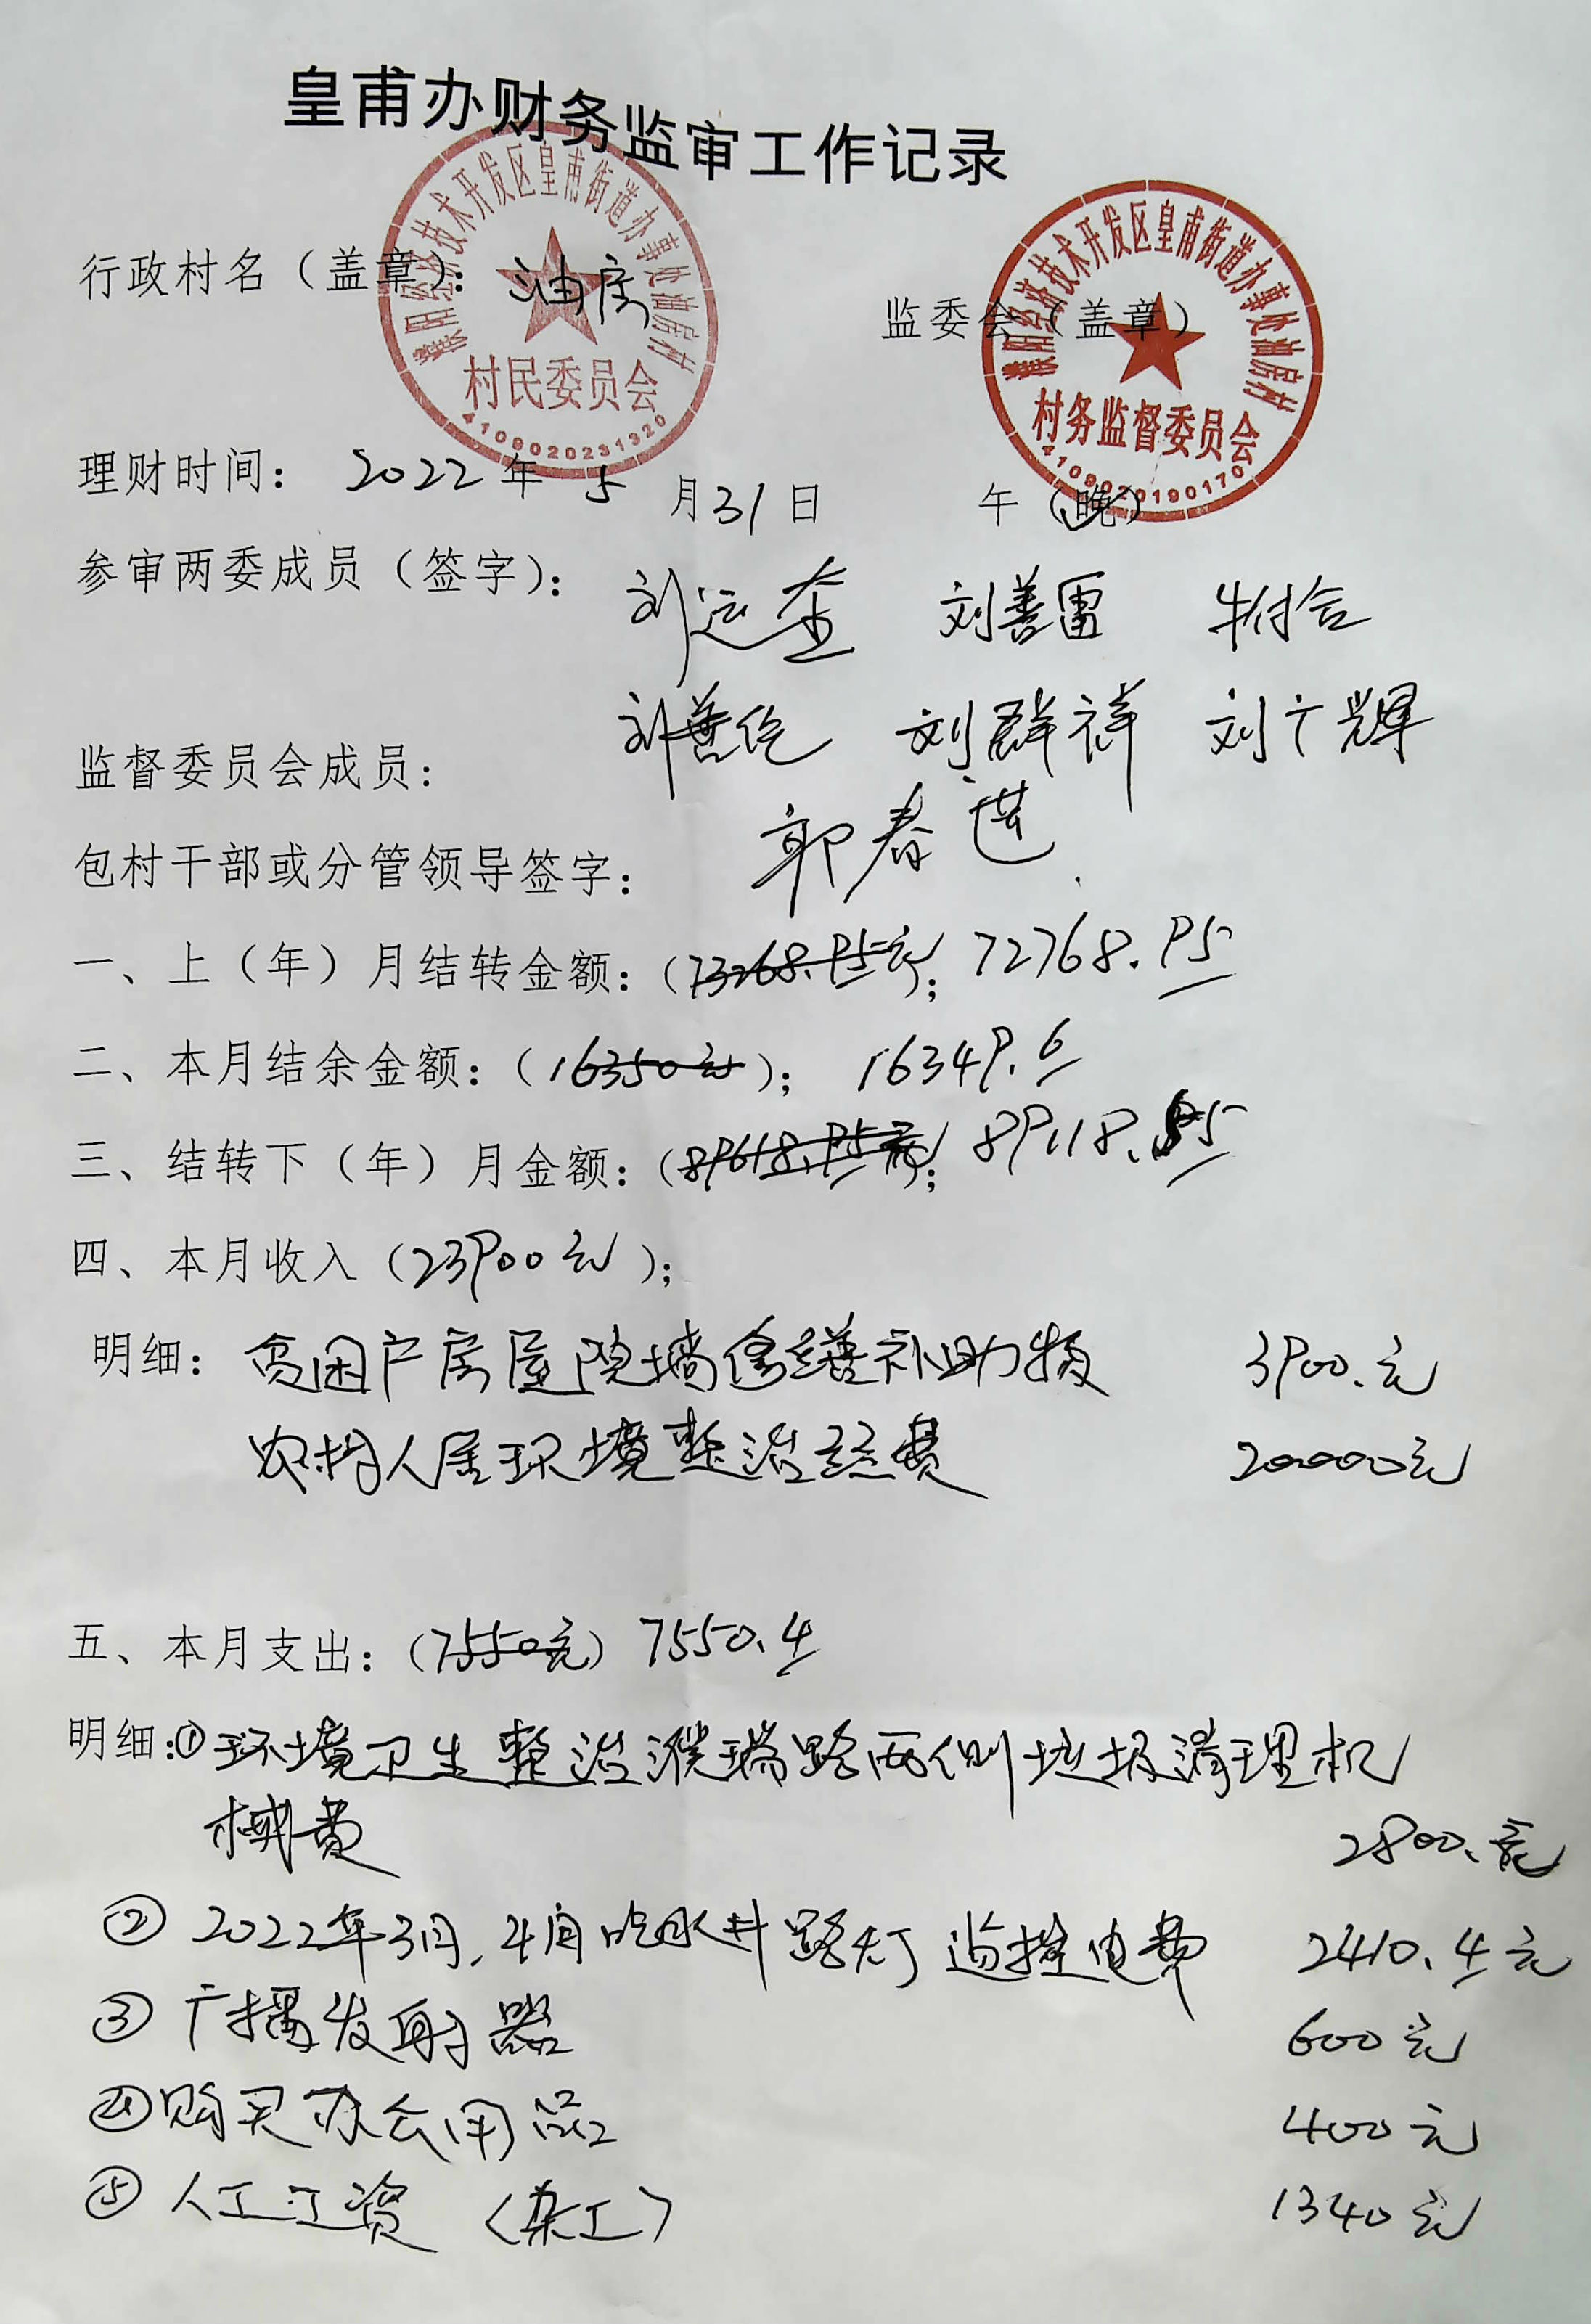 皇甫办财务监审工作记录
濮阳经济技术开发区皇甫街道办事处油房村
村民委员会
4109020231320
濮阳经济技术开发区皇甫街道办事处油房村
村务监督委员会
4109020190170
行政村名（盖章）：油房 监委会（盖章）
理财时间： 2022年5月31日 午（晚）
参审两委成员（签字）： 刘运 刘善雷 牛付合
刘善伦 刘群祥 刘广辉
监督委员会成员：
包村干部或分管领导签字： 郭春进
一、上（年）月结转金额：（73268.95元）；72768.95
二、本月结余金额：（16350元）； 16349.6
三、结转下（年）月金额：（89618.95元）；89118.55
四、本月收入（23900元）；
明细： 贫困户房屋院墙修缮补助款 3900.元
农村人居环境整治经费 20000元
五、本月支出：（7550元）7550.4
明细：①环境卫生整治濮瑞路两侧垃圾清理机
械费 2800.元
② 2022年3月.4月吃水井路灯监控电费 2410.4元
③ 广播发射器 600元
④购买办公用品 400元
⑤ 人工工资（杂工） 1340元